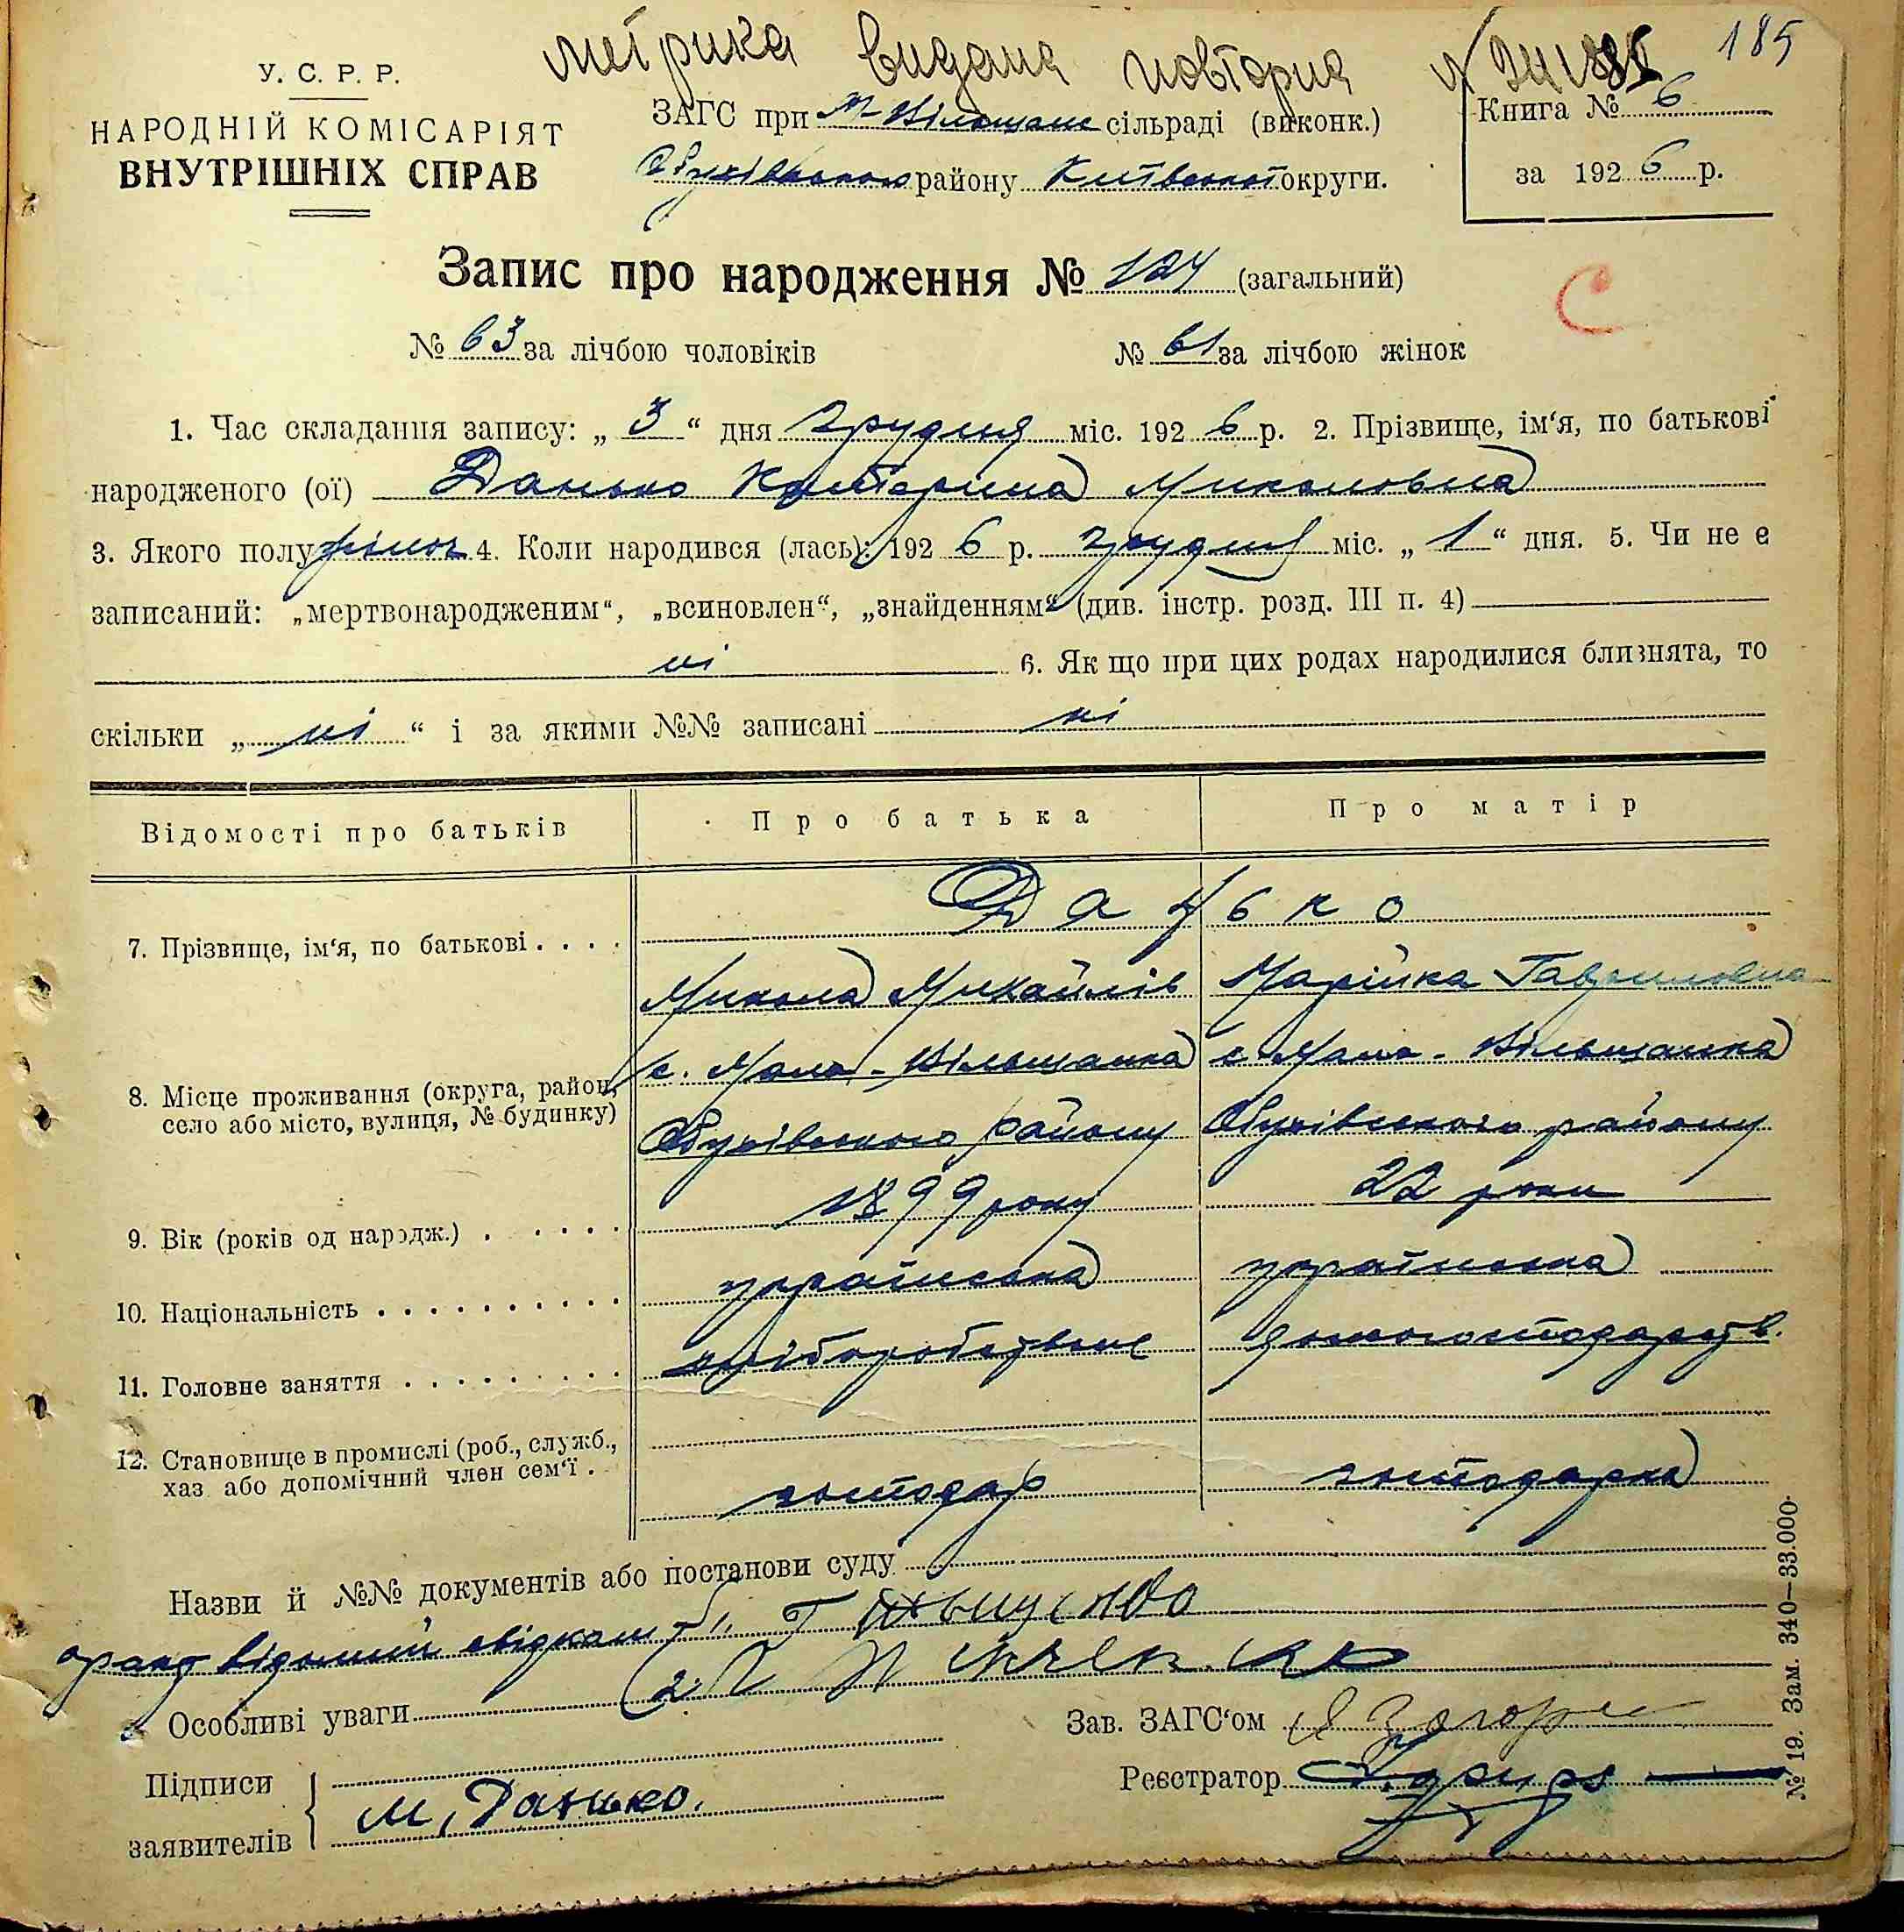 метрика видана повторна № 185
У. С. Р. Р.
НАРОДНІЙ КОМІСАРІЯТ
ВНУТРІШНІХ СПРАВ
ЗАГС при М-Вільщанс сільраді (виконк.)
Обухівського району Київської округи.
Книга № 6
за 1926 р.
Запис про народження № 124 (загальний)
С
№ 63 за лічбою чоловіків № 61 за лічбою жінок
1. Час складання запису: „ 3 “ дня грудня міс. 1926 р. 2. Прізвище, ім‘я, по батькові
народженого (ої) Данько Катерина Миколовна
3. Якого полу жіноч 4. Коли народився (лась): 1926 р. грудня міс. „ 1 “ дня. 5. Чи не є
записаний: „мертвонародженим“, „всиновлен“, „знайденням“ (див. інстр. розд. III п. 4)
ні 6. Як що при цих родах народилися близнята, то
скільки „ ні “ і за якими №№ записані ні
Відомості про батьків Про батька Про матір
7. Прізвище, ім‘я, по батькові . . . . Данько
Микола Михайлів Марійка Гавриловна
8. Місце проживання (округа, район, село або місто, вулиця, № будинку)
с. Мала-Вільщанка с. Мала-Вільщанка
Обухівського району Обухівського району
9. Вік (років од народж.) . . . . . 1899 року 22 роки
10. Національність . . . . . . . . . . українська українська
11. Головне заняття . . . . . . . . . хліборобство домогосподарств.
12. Становище в промислі (роб., служб.,
хаз. або допомічний член сем‘ї . господар господарка
Назви й №№ документів або постанови суду
факт відомий свідкам
Особливі уваги
Зав. ЗАГС‘ом
Підписи
заявителів
М. Данько.
Реєстратор
№ 19. Зам. 340—33.000.